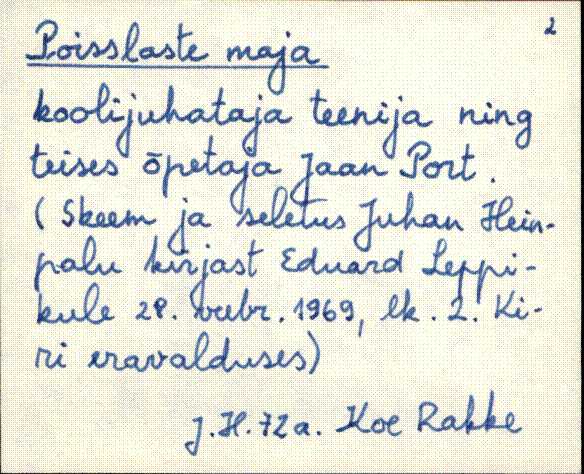 2
Poisslaste maja
koolijuhataja teenija ning
teises õpetaja Jaan Port.
(Skeem ja seletus Juhan Hein-
palu kirjast Eduard Leppi-
kule 28. veebr. 1969, lk. 2. Ki-
ri eravalduses)
J.H.72a. Koe Rakke